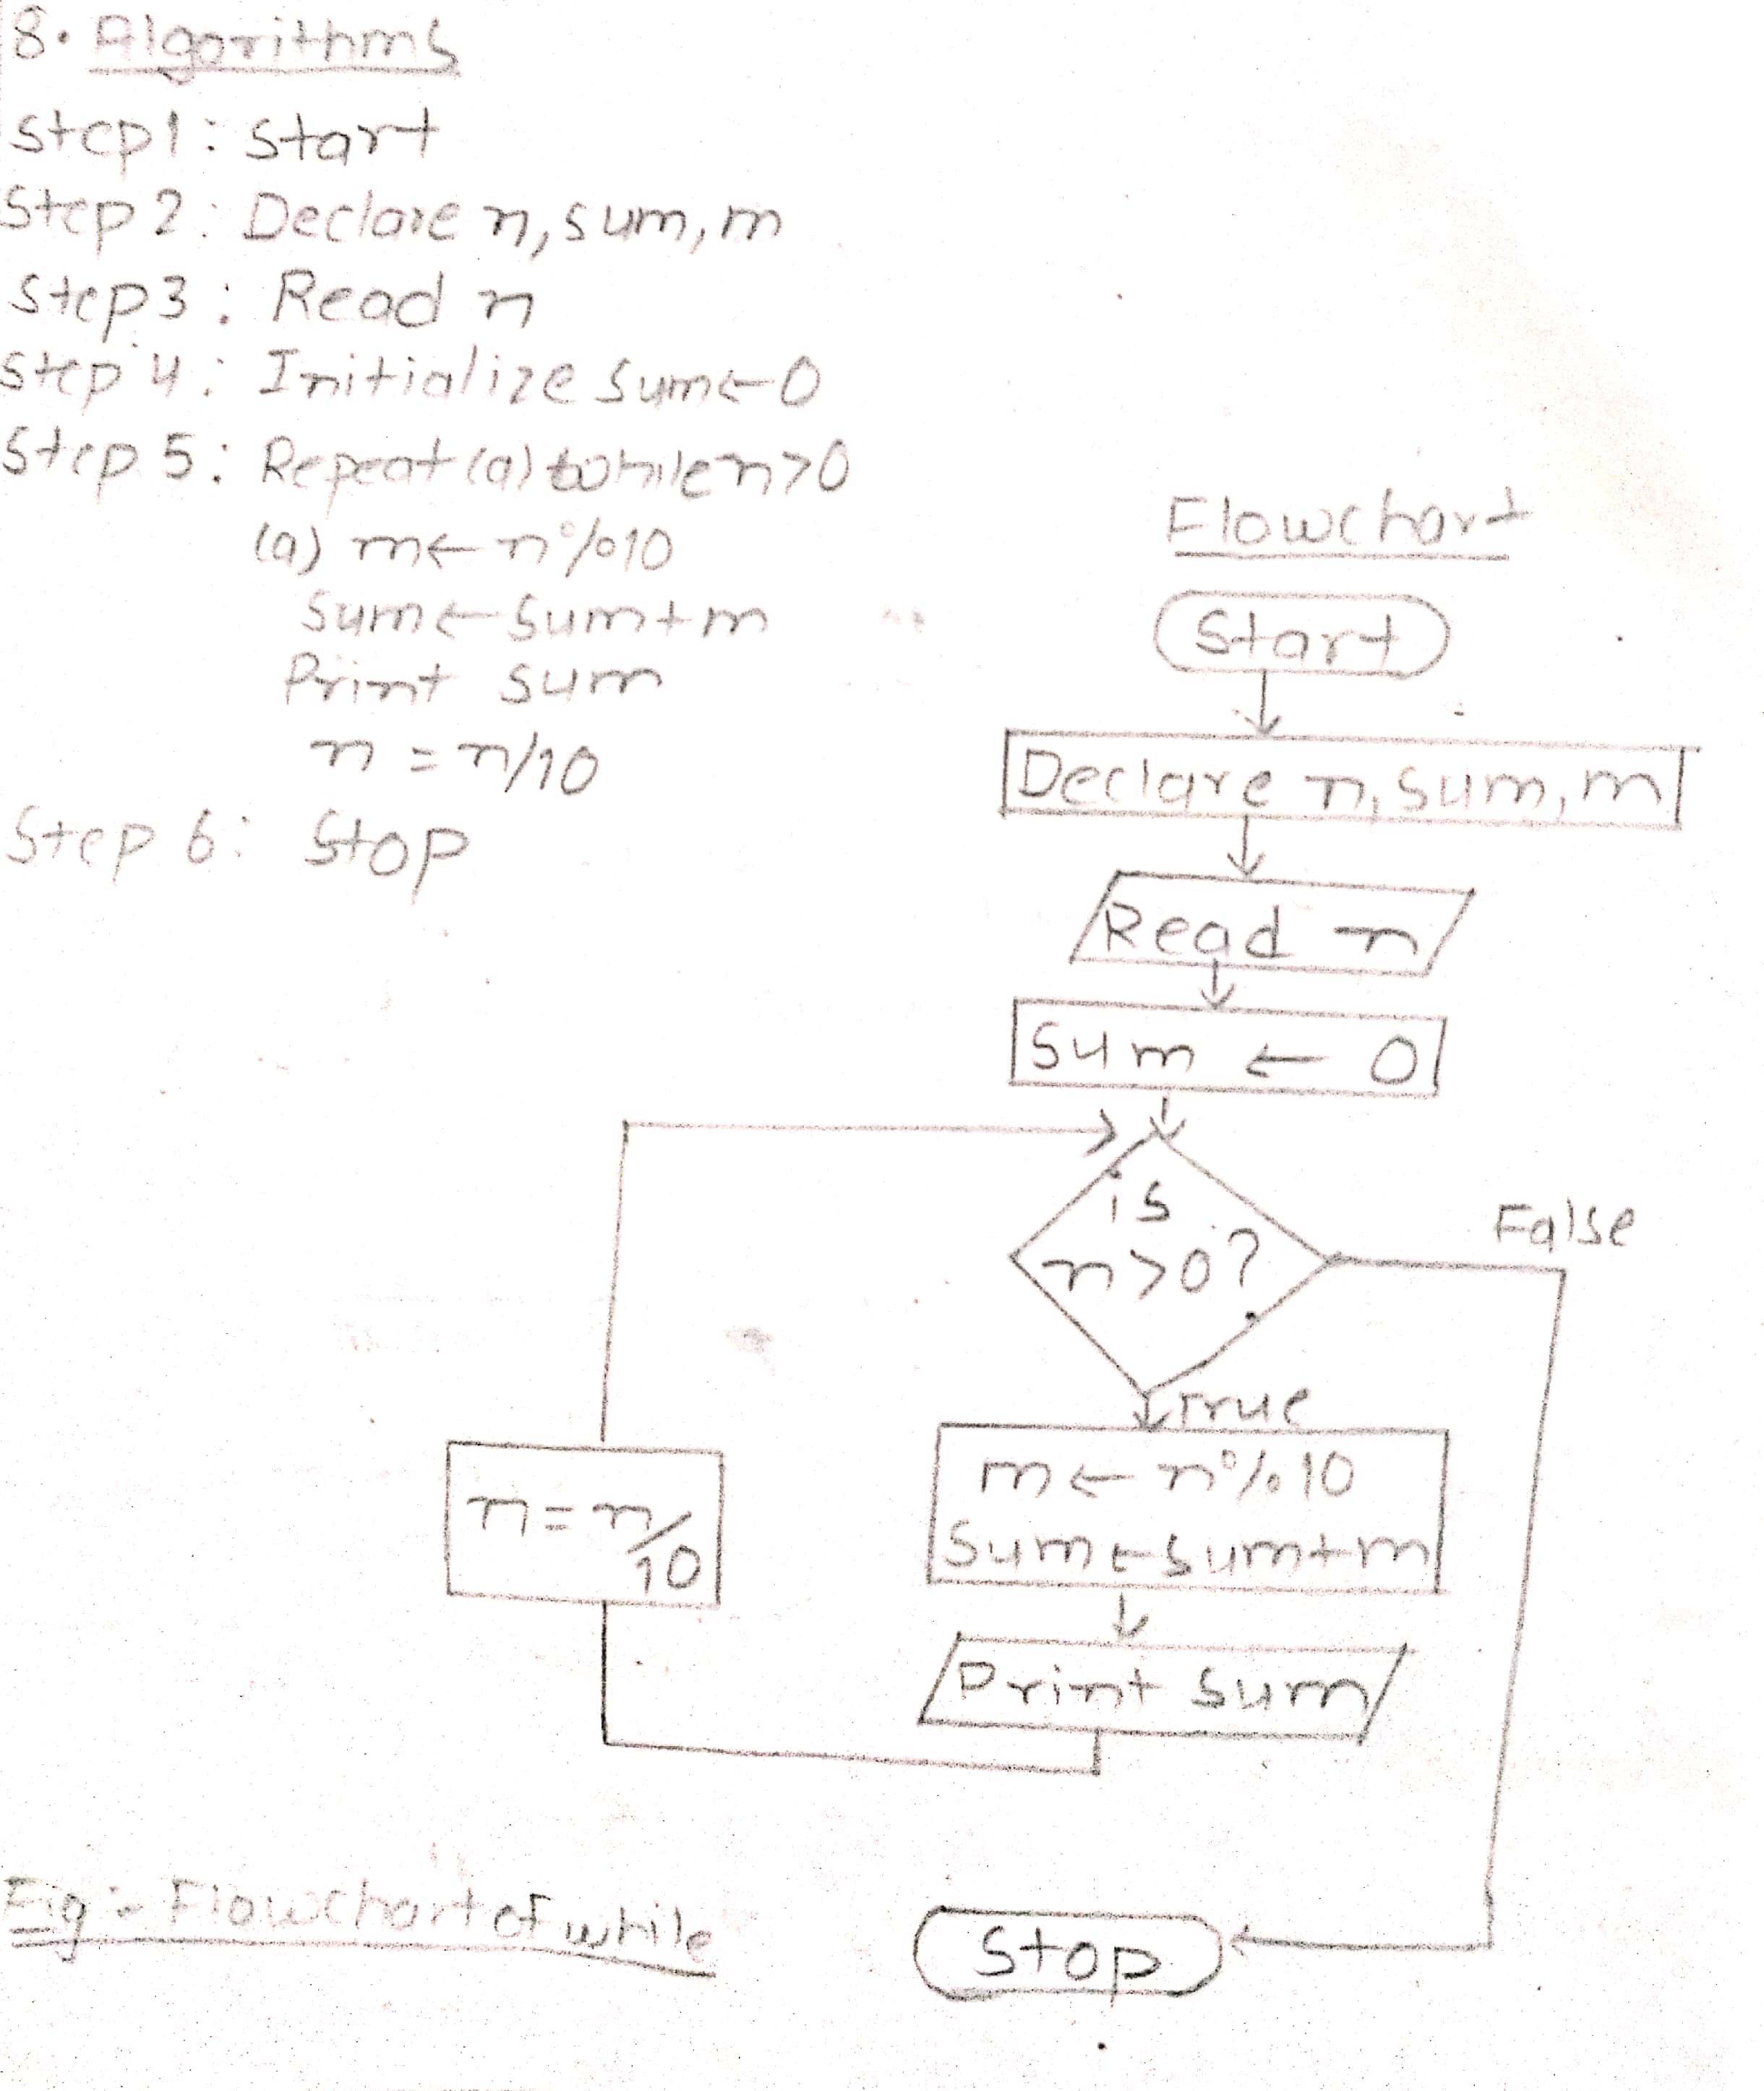 8. Algorithms
Step1: Start
Step 2: Declare n, sum, m
Step3: Read n
Step 4: Initialize sum←0
Step 5: Repeat (a) while n>0
(a) m← n%10
Sum← Sum+m
Print sum
n = n/10
Step 6: Stop
Flowchart
Start
Declare n, sum, m
Read n
Sum ← 0
is
n>0?
False
True
m← n%10
Sum←sum+m
Print sum
n=n/10
Stop
Fig:- Flowchart of while